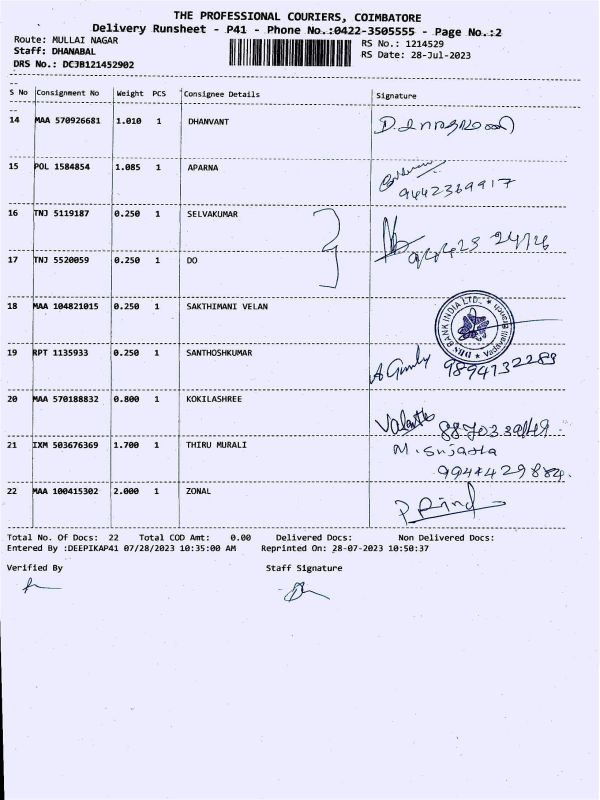 THE PROFESSIONAL COURIERS, COIMBATORE
Delivery Runsheet - P41 - Phone No.:0422-3505555 - Page No.:2
Route: MULLAI NAGAR RS No.: 1214529
Staff: DHANABAL RS Date: 28-Jul-2023
DRS No.: DCJB121452902
S No Consignment No Weight PCS Consignee Details Signature
14 MAA 570926681 1.010 1 DHANVANT
15 POL 1584854 1.085 1 APARNA
9442369917
16 TNJ 5119187 0.250 1 SELVAKUMAR
17 TNJ 5520059 0.250 1 DO
18 MAA 104821015 0.250 1 SAKTHIMANI VELAN
DBS BANK INDIA LTD. * Vadavalli Branch *
19 RPT 1135933 0.250 1 SANTHOSHKUMAR
9894132289
20 MAA 570188832 0.800 1 KOKILASHREE
21 IXM 503676369 1.700 1 THIRU MURALI M. Sujatha
9944429884.
22 MAA 100415302 2.000 1 ZONAL
Total No. Of Docs: 22 Total COD Amt: 0.00 Delivered Docs: Non Delivered Docs:
Entered By :DEEPIKAP41 07/28/2023 10:35:00 AM Reprinted On: 28-07-2023 10:50:37
Verified By Staff Signature